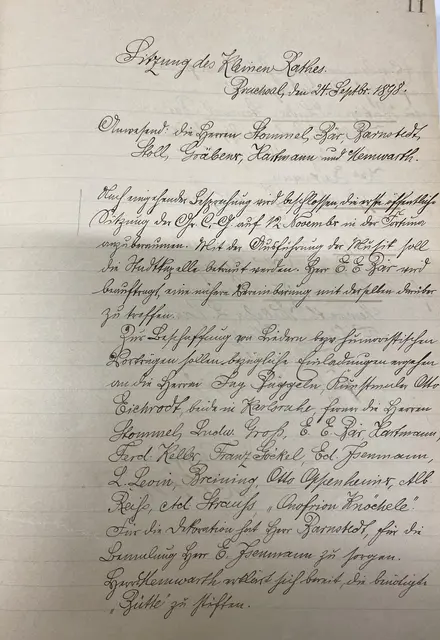 11
Sitzung des Kleinen Rathes.
Bruchsal, den 24. Septbr. 1898.
Anwesend: die Herren Stommel, Bär, Barnstedt,
Stoll, Gräbener, Hartmann und Hemwarth.
Nach eingehender Besprechung wird beschlossen, die erste öffentliche
Sitzung der Gr. C.-G. auf 12 Novembr in der Fortuna
anzuberaumen. Mit der Ausführung der Musik soll
die Stadtkapelle betraut werden. Herr E. E. Bär wird
beauftragt, eine nähere Vereinbarung mit derselben darüber
zu treffen.
Zur Beschaffung von Liedern bezw. humoristischen
Vorträgen sollen bezügliche Einladungen ergehen
an die Herren Kunstmaler Otto
Eichrodt, beide in Karlsruhe, ferner die Herren
Stommel, Ludw. Groß, E. E. Bär, Hartmann,
Ferd. Keller, Franz Göckel, Ed. Isenmann,
L. Levin, Breining, Otto Oppenheimer, Alb.
Reiß, Ad. Strauss, "Onofrion Knöchele".
Für die Dekoration hat Herr Barnstedt, für die
Bemalung Herr E. Isenmann zu sorgen.
Herr Hemwarth erklärt sich bereit, die benötigte
"Bütte" zu stiften.